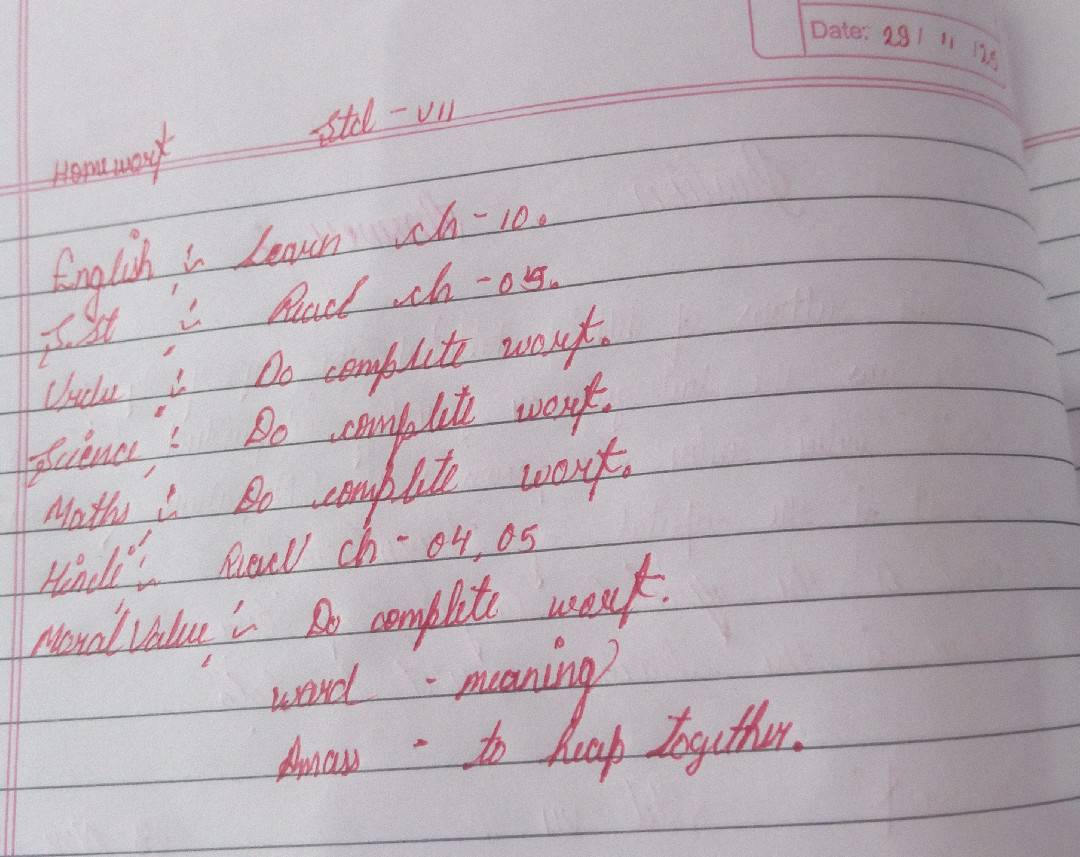 Date: 29/11/25
Homework Std - VII
English :- Learn ch - 10.
S.St :- Read ch - 05.
Urdu :- Do complete work.
Science :- Do complete work.
Maths :- Do complete work.
Hindi :- Read ch - 04, 05
Moral Value :- Do complete work.
word - meaning
Amass - to heap together.